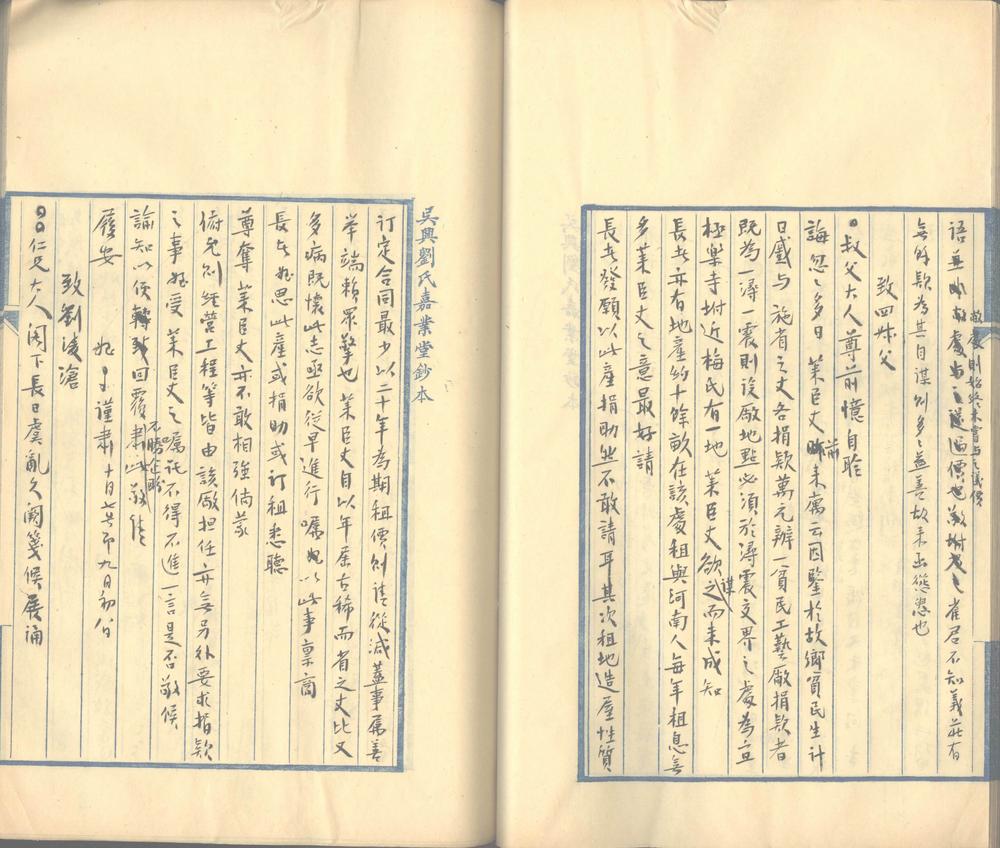 故處則始終未嘗与之議價
語且
無餘款為其自謀則多多益善故来函慫恿也
致四叔父
叔父大人尊前憶自聆
誨忽忽多日萊臣丈前来寓云因鑒於故鄉貧民生計
日蹙与施省之丈各捐款萬元辦一貧民工藝廠捐款者
既為一潯一震則設廠地點必須於潯震交界之處為宜
極樂寺附近梅氏有一地萊臣丈欲謀之而未成知
長者亦有地產約十餘畝在該處租與河南人每年租息無
多萊臣丈之意最好請
長者發願以此產捐助然不敢請耳其次租地造屋性質
吳興劉氏嘉業堂鈔本
訂定合同最少以二十年為期租價則請從減蓋事屬善
举端賴眾擎也萊臣丈自以年届古稀而省之丈比又
多病既懷此志亟欲從早進行囑姪以此事稟商
長者姪思此產或捐助或訂租悉聽
尊奪萊臣丈亦不敢相強倘蒙
俯允則經营工程等皆由該廠担任亦無另外要求捐款
之事姪受萊臣丈之囑託不得不進一言是否敬候
諭知以便轉致回覆不勝企盼肅此敬請
履安 姪 謹肅 十月七号即九月初
致劉凌滄
仁兄大人閣下長日虞亂久闕箋候展誦